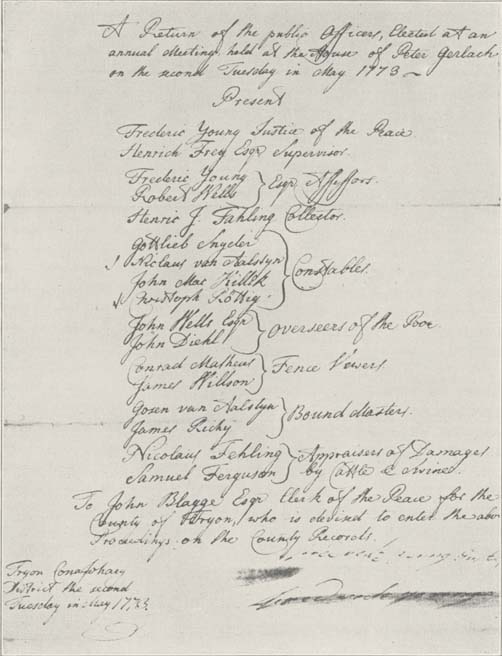 A Return of the public Officers, Elected at an
annual Meeting, held at the House of Peter Gerlach
on the second Tuesday in May 1773
Present
Frederic Young Justice of the Peace
Henrich Frey Esqr Supervisor.
Frederic Young
Robert Wells } Esqr Assessors.
Henric J. Fahling Collector.
Gottlieb Snyder
Niclaus van Aalstyn
John Mac
Constables.
John Wells Esqr
John Diehl } Overseers of the Poor
Conrad Matheus
James Willson } Fence Viewers
Gosen van Aalstyn
James Ricky } Bound Masters.
Nicolaus Fehling
Samuel Ferguson } Appraisers of Damages
by Cattle & Swine.
To John Blagge Esqr Clerk of the Peace for the
County of Tryon, who is desired to enter the abov
Proceedings on the County Records.
Tryon Conajohary
District the second
Tuesday in May 1773